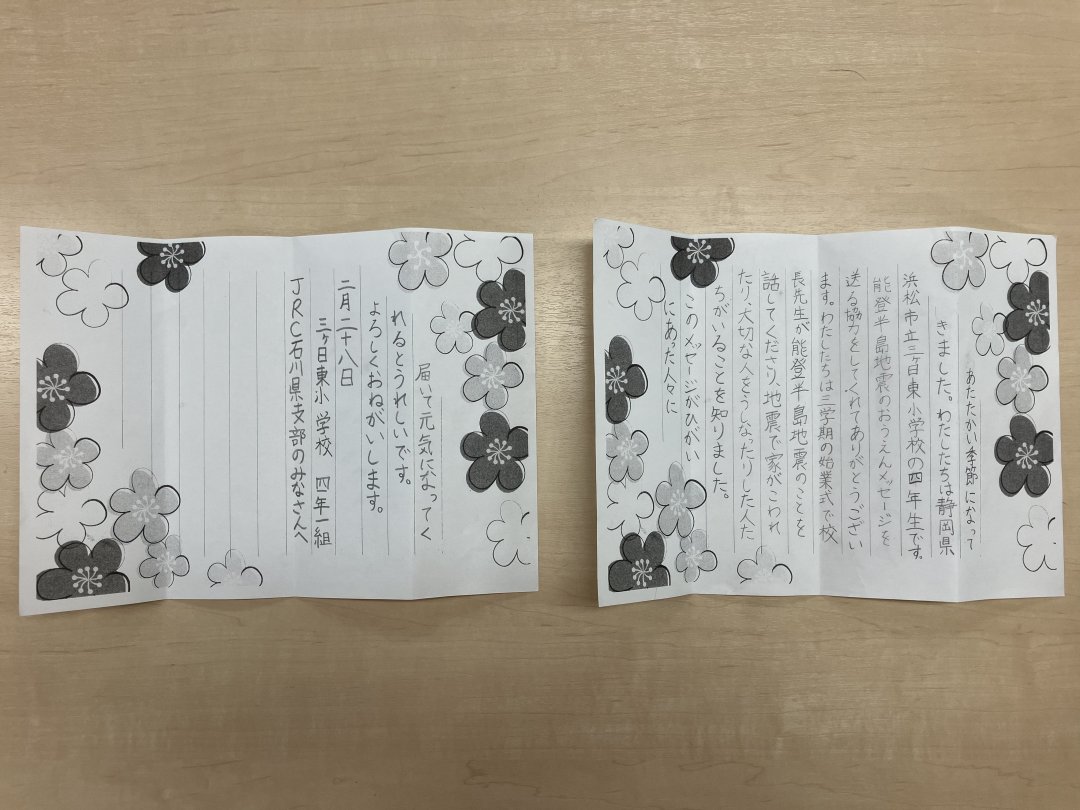 あたたかい季節になって
きました。わたしたちは静岡県
浜松市立三ヶ日東小学校の四年生です。
能登半島地震のおうえんメッセージを
送る協力をしてくれてありがとうござい
ます。わたしたちは三学期の始業式で校
長先生が能登半島地震のことを
話してくださり、地震で家がこわれ
たり、大切な人をうしなったりした人た
ちがいることを知りました。
このメッセージがひがい
にあった人々に
届いて元気になってく
れるとうれしいです。
よろしくおねがいします。
二月二十八日
三ヶ日東小学校 四年一組
JRC石川県支部のみなさんへ